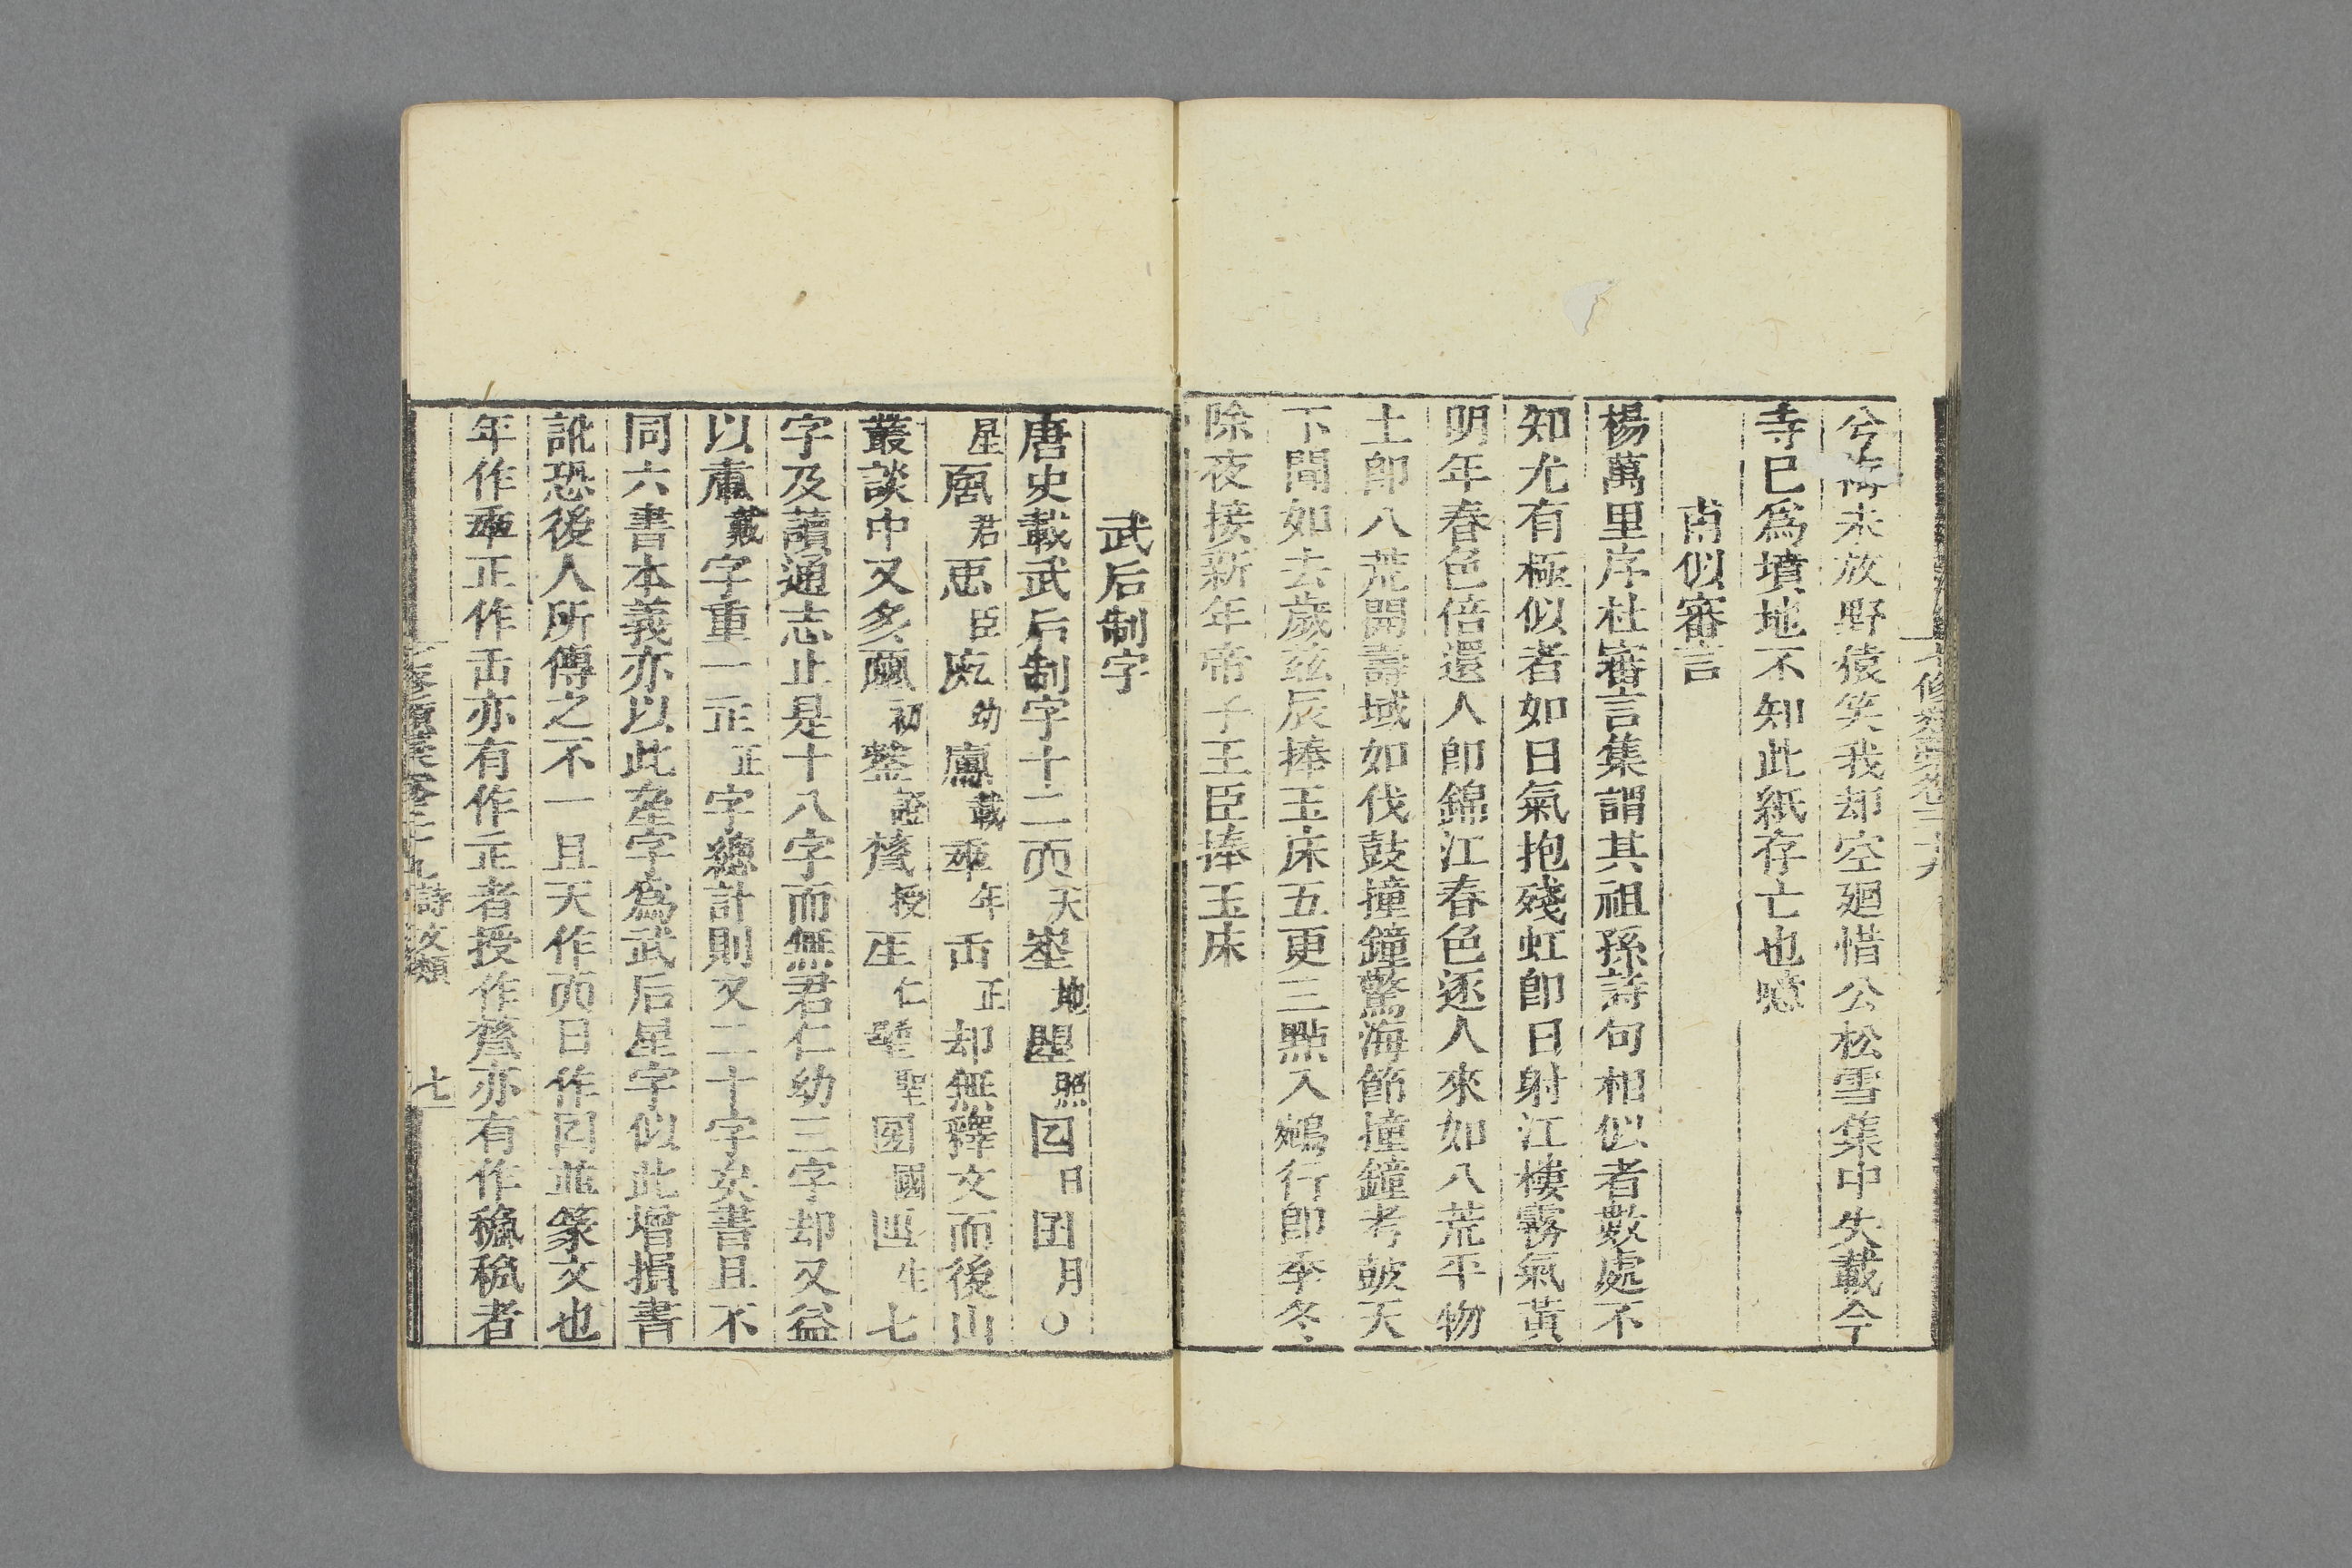 兮海未放野猿笑我却空廻惜公松雪集中失載今
寺已爲墳地不知此紙存亡也噫
甫似審言
楊萬里序杜審言集謂其祖孫詩句相似者數處不
知尤有極似者如日氣抱殘虹卽日射江樓霧氣黃
明年春色倍還人卽錦江春色逐人來如八荒平物
土卽八荒開壽域如伐鼓撞鐘驚海節撞鐘考皷天
下聞如去歲茲辰捧玉床五更三點入鵷行卽季冬
除夜接新年帝子王臣捧玉床
武后制字
唐史載武后制字十二而天埊地曌照囸日囝月〇
星風君恖臣幼載年击正却無釋文而後山
叢談中又多初證授仁聖圀國生七
字及讀通志止是十八字而無君仁幼三字却又益
以戴字重一正字總計則又二十字矣書且不
同六書本義亦以此埊字爲武后星字似此增損書
訛恐後人所傳之不一且天作日作囸並篆文也
年作正作击亦有作者授作亦有作者
七修類藁卷二十九 詩文類 七